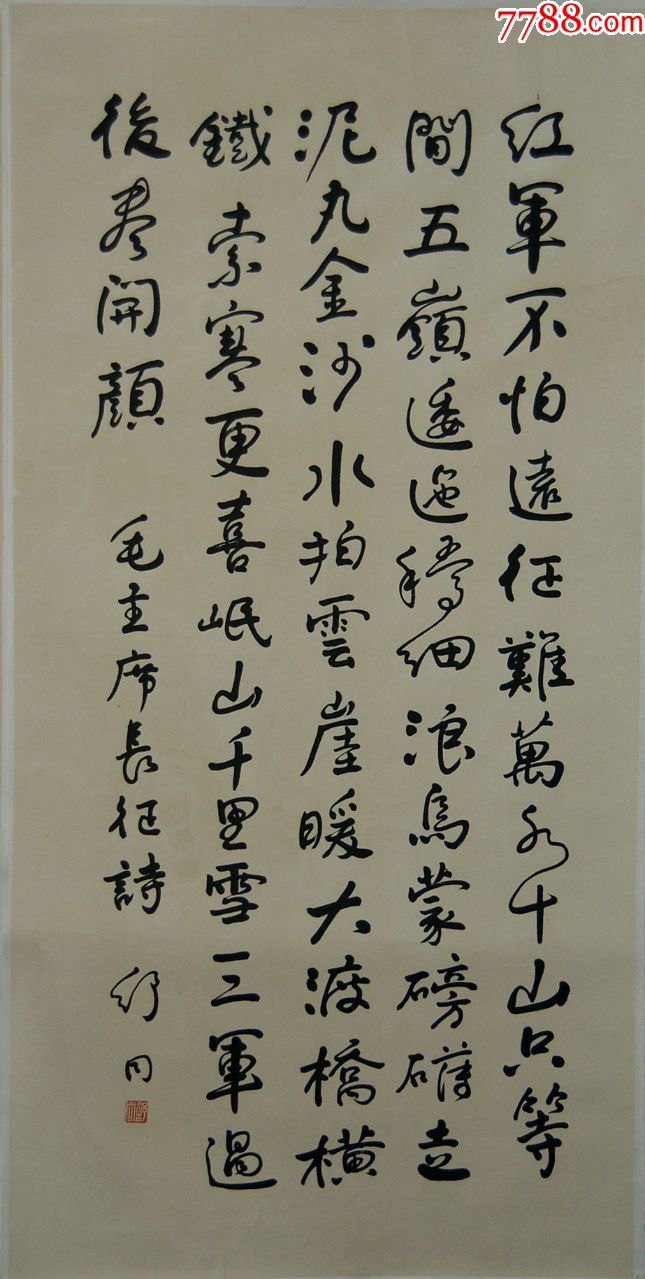 7788.com
紅軍不怕遠征難萬水千山只等
間五嶺逶迤騰細浪烏蒙磅礴走
泥丸金沙水拍雲崖暖大渡橋橫
鐵索寒更喜岷山千里雪三軍過
後盡開顔
毛主席長征詩 舒同